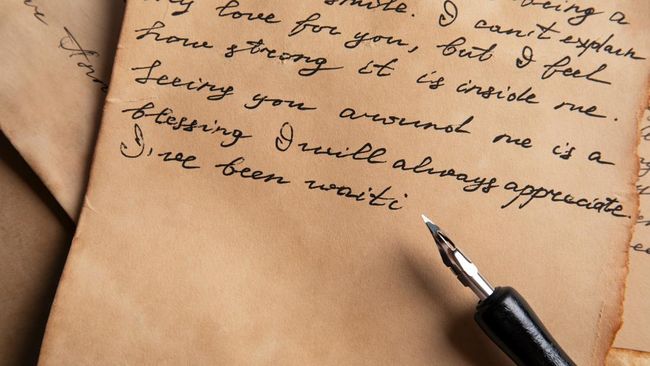 smile. I being a
my love for you, but I can't explain
how strong it is inside me. I feel
Seeing you around me is a
blessing I will always appreciate.
I've been waiti